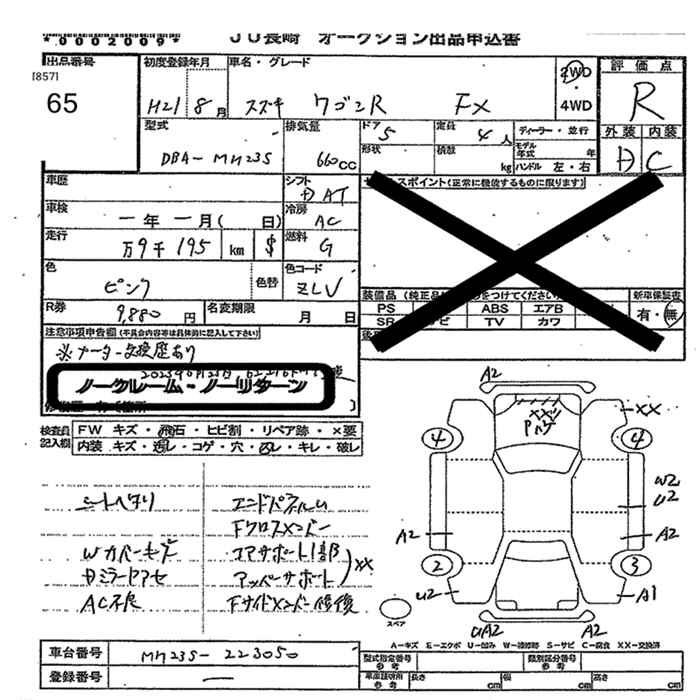 *0002009* JU長崎 オークション出品申込書
出品番号 初度登録年月 車名・グレード 2WD 評価点
[857]
65 H21 8月 スズキ ワゴンR FX 4WD R
型式 排気量 ドア 5 定員 4人 ディーラー・並行 外装 内装
DBA-MH23S 660cc 形状 積載 kg モデル年式 年 ハンドル 左・右 D C
車歴 シフト AT
スポイント(正常に機能するものに限ります)
車検 一年 一月( 日) 冷房 AC
走行 万9千195 km $ 燃料 G
色 ピンク 色替 色コード ZLV
装備品 新車保証書
PS ABS エアB 有・無
SR TV カワ
R券 9,880円 名変期限 月 日
注意事項申告欄(不具合内容等は具体的に記入して下さい)
※メーター交換歴あり
ノークレーム・ノーリターン
検査員記入欄 FW キズ・飛石・ヒビ割・リペア跡・×要
内装 キズ・汚レ・コゲ・穴・凹レ・キレ・破レ
シートヘタリ エンドパネルU
Fクロスメンバー
Wカバーキズ コアサポート1部
Dミラーアセ アッパーサポート XX
AC不良 Fサイドメンバー修復
A2
XX
4 4
W2
U2
A2 A2
2 3
U2 A1
スペア
UA2 A2
A-キズ E-エクボ U-凹み W-補修跡 S-サビ C-腐食 XX-交換済
車台番号 MH23S-223050
登録番号 —
型式指定番号参考 類別区分番号参考
車庫証明用参考 長さ cm 幅 cm 高さ cm